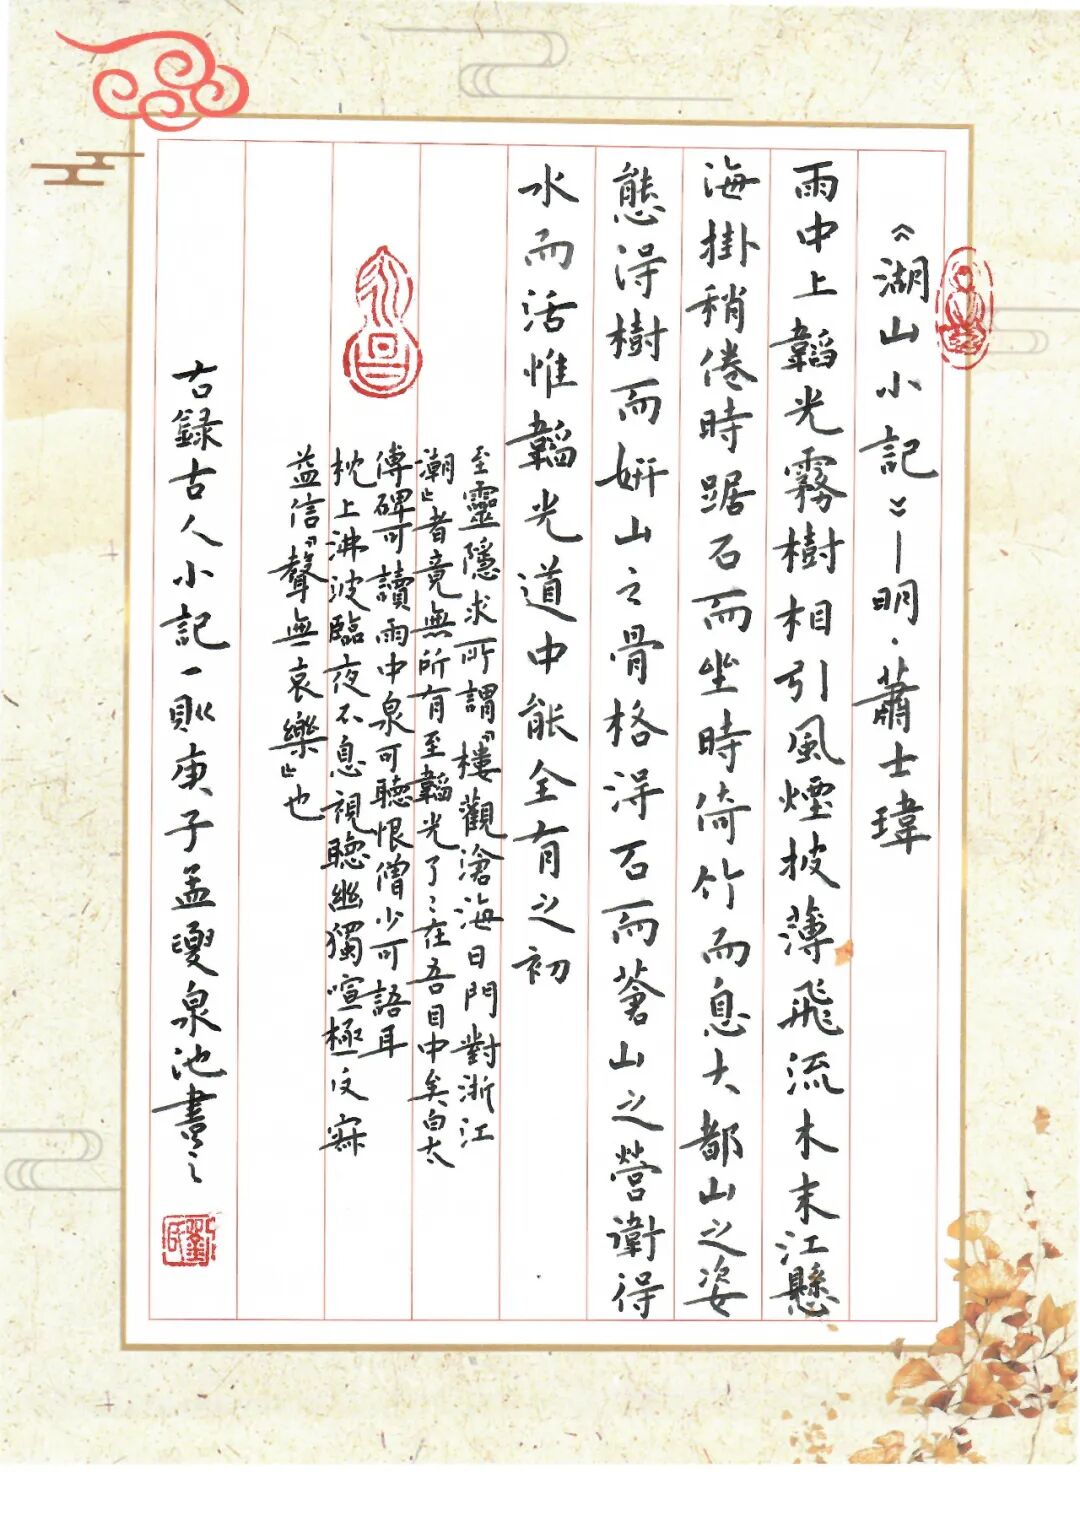 《湖山小記》—明·蕭士瑋
雨中上韜光霧樹相引風煙披薄飛流木末江懸
海掛稍倦時踞石而坐時倚竹而息大都山之姿
態得樹而妍山之骨格得石而蒼山之營衛得
水而活惟韜光道中能全有之初
至靈隱求所謂『樓觀滄海日門對浙江
潮』者竟無所有至韜光了〻在吾目中矣白太
傅碑可讀雨中泉可聽恨僧少可語耳
枕上沸波臨夜不息視聽幽獨喧極反寂
益信『聲無哀樂』也
右録古人小記一則庚子孟夏泉池書之